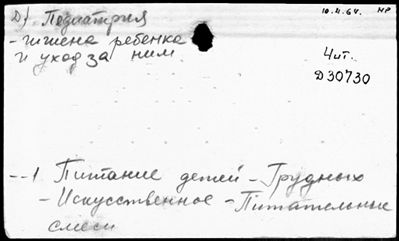 Д). Педиатрия
10.4.64. НР
- гигиена ребенка
и уход за ним.
Чит.
D 30730
--1. Питание детей - Грудных
- Искусственное - Питательные
смеси